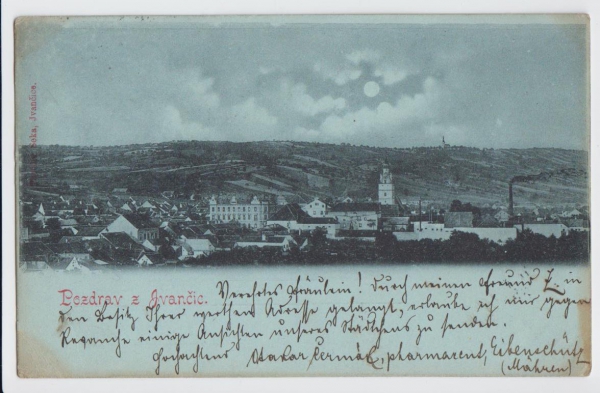 Pozdrav z Jvančic.
Verehrtes Fräulein! Durch meinen Freund Z. in
den Besitz Ihrer werthen Adresse gelangt, erlaube ich mir gegen
Revanche einige Ansichten unseres Städtchens zu senden.
Hochachtend Otakar Čermák, pharmaceut, Eibenschütz
(Mähren)
Jvančice.